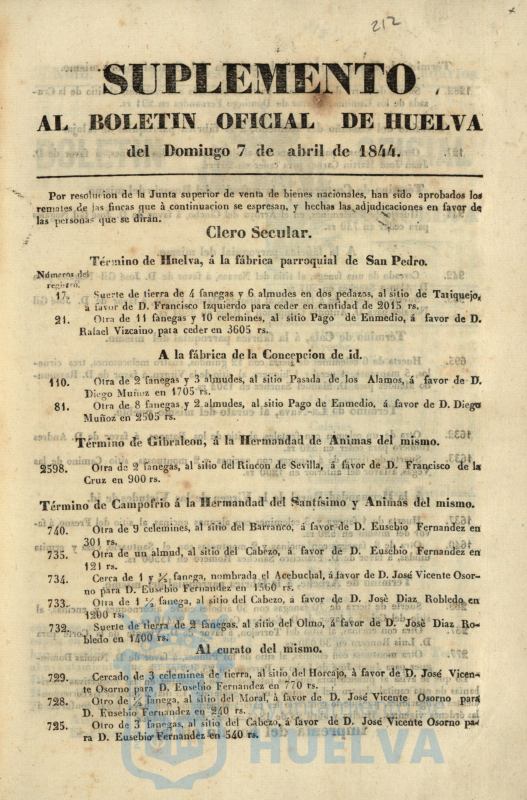 212
SUPLEMENTO
AL BOLETIN OFICIAL DE HUELVA
del Domiugo 7 de abril de 1844.
Por resolucion de la Junta superior de venta de bienes nacionales, han sido aprobados los
remates de las fincas que à continuacion se espresan, y hechas las adjudicaciones en favor de
las personas que se dirán.
Clero Secular.
Término de Huelva, á la fábrica parroquial de San Pedro.
Números del
registro.
17. Suerte de tierra de 4 fanegas y 6 almudes en dos pedazos, al sitio de Tariquejo,
à favor de D. Francisco Izquierdo para ceder en cantidad de 2015 rs.
21. Otra de 11 fanegas y 10 celemines, al sitio Pago de Enmedio, á favor de D.
Rafael Vizcaino para ceder en 3605 rs.
A la fábrica de la Concepcion de id.
110. Otra de 2 fanegas y 3 almudes, al sitio Pasada de los Alamos, á favor de D.
Diego Muñoz en 1705 rs.
81. Otra de 8 fanegas y 2 almudes, al sitio Pago de Enmedio, á favor de D. Diego
Muñoz en 2505 rs.
Término de Gibraleon, á la Hermandad de Animas del mismo.
2598. Otra de 2 fanegas, al sitio del Rincon de Sevilla, á favor de D. Francisco de la
Cruz en 900 rs.
Término de Campofrio á la Hermandad del Santísimo y Animas del mismo.
740. Otra de 9 celemines, al sitio del Barranco, á favor de D. Eusebio Fernandez en
301 rs.
735. Otra de un almud, al sitio del Cabezo, á favor de D. Eusebio Fernandez en
121 rs.
734. Cerca de 1 y ½ fanega, nombrada el Acebuchal, á favor de D. José Vicente Osor-
no para D. Eusebio Fernandez en 1560 rs.
733. Otra de 1 ½ fanega, al sitio del Cabezo, á favor de D. Josè Diaz Robledo en
1200 rs.
732. Suerte de tierra de 2 fanegas, al sitio del Olmo, á favor de D. Josè Diaz Ro-
bledo en 1400 rs.
Al curato del mismo.
729. Cercado de 3 celemines de tierra, al sitio del Horcajo, à favor de D. José Vicen-
te Osorno para D. Eusebio Fernandez en 770 rs.
728. Otro de ½ fanega, al sitio del Moral, á favor de D. José Vicente Osorno para
D. Eusebio Fernandez en 240 rs.
725. Otro de 3 fanegas, al sitio del Cabezo, á favor de D. José Vicente Osorno pa-
ra D. Eusebio Fernandez en 540 rs.
HUELVA